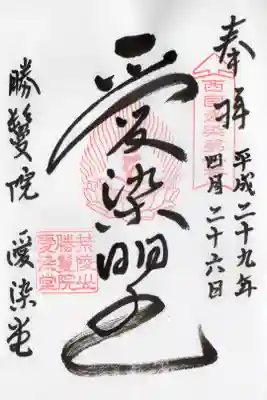 奉拝
平成二十九年
四月二十六日
愛染明王
勝鬘院 愛染堂
荒陵山
勝鬘院
愛染堂